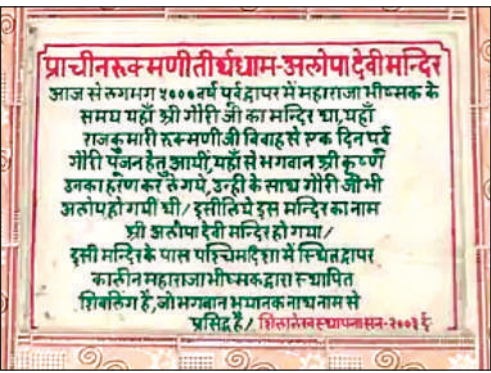 प्राचीन रुक्मणी तीर्थधाम-अलोपा देवी मन्दिर
आज से लगभग ५००० वर्ष पूर्व द्वापर में महाराजा भीष्मक के
समय यहाँ श्री गौरी जी का मन्दिर था, यहाँ
राजकुमारी रुक्मणी जी विवाह से एक दिन पूर्व
गौरी पूजन हेतु आयीं, यहाँ से भगवान श्री कृष्ण
उनका हरण कर ले गये, उन्ही के साथ गौरी जी भी
अलोप हो गयीं थी / इसीलिये इस मन्दिर का नाम
श्री अलोपा देवी मन्दिर हो गया /
इसी मन्दिर के पास पश्चिम दिशा में स्थित द्वापर
कालीन महाराजा भीष्मक द्वारा स्थापित
शिवलिंग है, जो भगवान भयानक नाथ नाम से
प्रसिद्ध है / शिलालेख स्थापना सन-२००३ ई